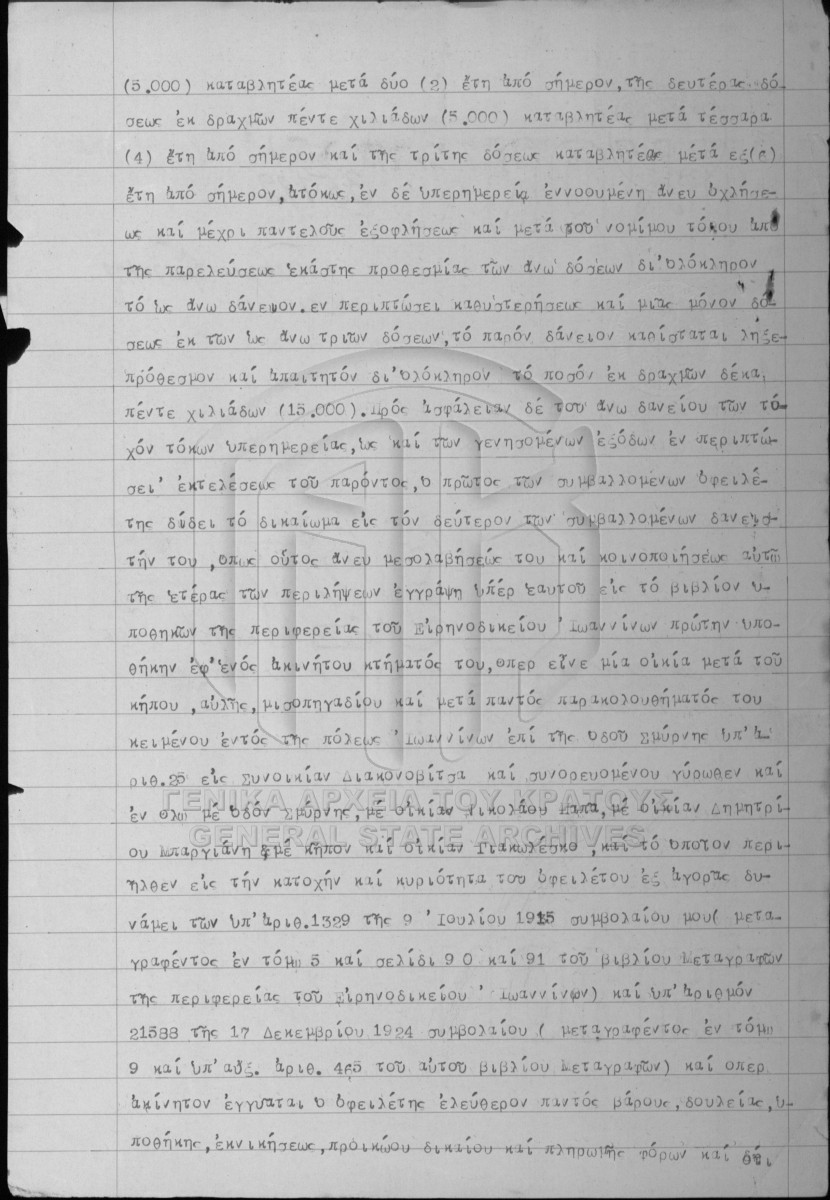 (5.000) καταβλητέας μετά δύο (2) ἔτη ἀπό σήμερον, τῆς δευτέρας δό-
σεως ἐκ δραχμῶν πέντε χιλιάδων (5.000) καταβλητέας μετά τέσσαρα
(4) ἔτη ἀπό σήμερον καί τῆς τρίτης δόσεως καταβλητέας μέτά εξ(6)
ἔτη ἀπό σήμερον, ἀτόκως, ἐν δέ ὑπερημερείᾳ ἐννοουμένη ἄνευ ὀχλήσε-
ως καί μέχρι παντελοῦς ἐξοφλήσεως καί μετά τοῦ νομίμου τόκου ἀπό
τῆς παρελεύσεως ἑκάστης προθεσμίας τῶν ἄνω δόσεων δι'ὁλόκληρον
τό ὡς ἄνω δάνειον. εν περιπτώσει καθυστερήσεως καί μιᾶς μόνον δό-
σεως ἐκ τῶν ὡς ἄνω τριῶν δόσεων, τό παρόν δάνειον καθίσταται ληξε-
πρόθεσμον καί ἀπαιτητόν δι'ὁλόκληρον τό ποσόν ἐκ δραχμῶν δέκα
πέντε χιλιάδων (15.000). Πρός ἀσφάλειαν δέ τοῦ ἄνω δανείου τῶν τυ-
χόν τόκων ὑπερημερείας, ὡς καί τῶν γενησομένων ἐξόδων ἐν περιπτώ-
σει ἐκτελέσεως τοῦ παρόντος, ὁ πρῶτος τῶν συμβαλλομένων ὀφειλέ-
της δίδει τό δικαίωμα εἰς τόν δεύτερον τῶν συμβαλλομένων δανεισ-
τήν του, ὅπως οὗτος ἄνευ μεσολαβήσεώς του καί κοινοποιήσεως αὐτῷ
τῆς ἑτέρας τῶν περιλήψεων ἐγγράψῃ ὑπέρ ἑαυτοῦ εἰς τό βιβλίον υ-
ποθηκῶν τῆς περιφερείας τοῦ Εἰρηνοδικείου Ἰωαννίνων πρώτην υπο-
θήκην ἐφ'ἑνός ἀκινήτου κτήματός του, ὅπερ εἶνε μία οἰκία μετά τοῦ
κήπου, αὐλῆς, μισοπηγαδίου καί μετά παντός παρακολουθήματός του
κειμένου ἐντός τῆς πόλεως Ἰωαννίνων ἐπί τῆς ὁδοῦ Σμύρνης ὑπ'ἀ-
ριθ.25 εἰς Συνοικίαν Διακονοβίτσα καί συνορευομένου γύρωθεν καί
ἐν ὅλῳ μέ ὁδόν Σμύρνης, μέ οἰκίαν Νικολάου Παπᾶ, μέ οἰκίαν Δημητρί-
ου Μπαργιάνη &μέ κῆπον καί οἰκίαν Γιακωλέσκο, καί τό ὁποῖον περι-
ῆλθεν εἰς τήν κατοχήν καί κυριότητα τοῦ ὀφειλέτου ἐξ ἀγορᾶς δυ-
νάμει τῶν ὑπ'ἀριθ.1329 τῆς 9 Ἰουλίου 1915 συμβολαίου μου( μετα-
γραφέντος ἐν τόμῳ 5 καί σελίδι 9 0 καί 91 τοῦ βιβλίου Μεταγραφῶν
τῆς περιφερείας τοῦ Εἰρηνοδικείου Ἰωαννίνων) καί ὑπ'ἀριθμόν
21588 τῆς 17 Δεκεμβρίου 1924 συμβολαίου ( μεταγραφέντος ἐν τόμῳ
9 καί ὑπ'αὔξ. ἀριθ. 465 τοῦ αὐτοῦ βιβλίου Μεταγραφῶν) καί οπερ
ἀκίνητον ἐγγυᾶται ὁ ὀφειλέτης ἐλεύθερον παντός βάρους, δουλείας, υ-
ποθήκης, ἐκνικήσεως, προικώου δικαίου καί πληρωμῆς φόρων καί ὅτι
ΓΕΝΙΚΑ ΑΡΧΕΙΑ ΤΟΥ ΚΡΑΤΟΥΣ
GENERAL STATE ARCHIVES